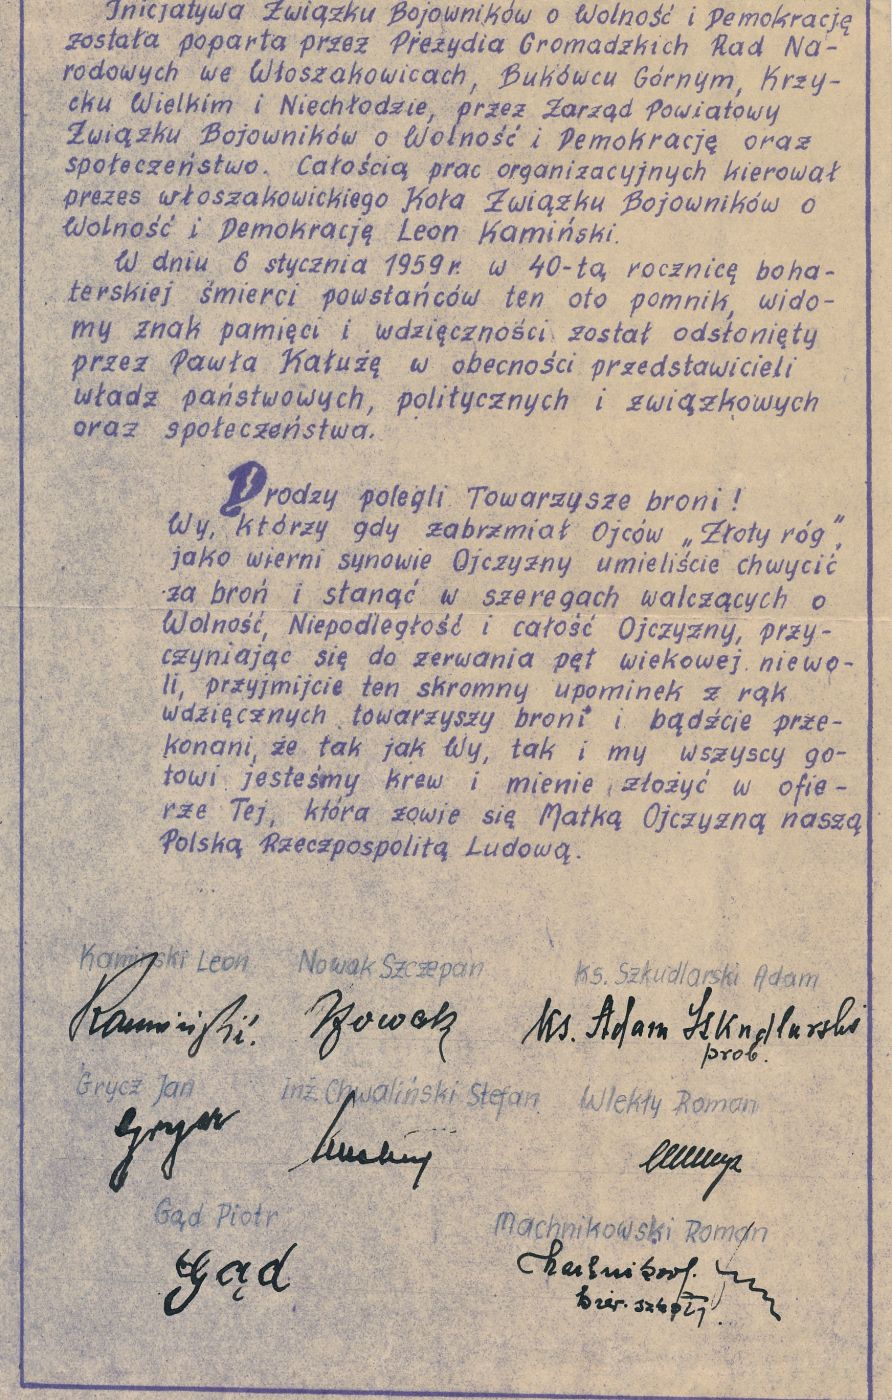 Inicjatywa Związku Bojowników o Wolność i Demokrację
została poparta przez Prezydia Gromadzkich Rad Na-
rodowych we Włoszakowicach, Bukówcu Górnym, Krzy-
cku Wielkim i Niechłodzie, przez Zarząd Powiatowy
Związku Bojowników o Wolność i Demokrację oraz
społeczeństwo. Całością prac organizacyjnych kierował
prezes włoszakowickiego Koła Związku Bojowników o
Wolność i Demokrację Leon Kamiński.
W dniu 6 stycznia 1959 r. w 40-tą rocznicę boha-
terskiej śmierci powstańców ten oto pomnik, wido-
my znak pamięci i wdzięczności został odsłonięty
przez Pawła Kałużę w obecności przedstawicieli
władz państwowych, politycznych i związkowych
oraz społeczeństwa.
Drodzy polegli Towarzysze broni!
Wy, którzy gdy zabrzmiał Ojców „Złoty róg",
jako wierni synowie Ojczyzny umieliście chwycić
za broń i stanąć w szeregach walczących o
Wolność, Niepodległość i całość Ojczyzny, przy-
czyniając się do zerwania pęt wiekowej niewo-
li, przyjmijcie ten skromny upominek z rąk
wdzięcznych towarzyszy broni i bądźcie prze-
konani, że tak jak Wy, tak i my wszyscy go-
towi jesteśmy krew i mienie złożyć w ofie-
rze Tej, która zowie się Matką Ojczyzną naszą
Polską Rzeczpospolitą Ludową.
Kamiński Leon Nowak Szczepan Ks. Szkudlarski Adam
Kamiński. Nowak Ks. Adam Szkudlarski
prob.
Grycz Jan inż Chwaliński Stefan Wlekły Roman
Grycz
Gąd Piotr Machnikowski Roman
Gąd
kier. szkoły